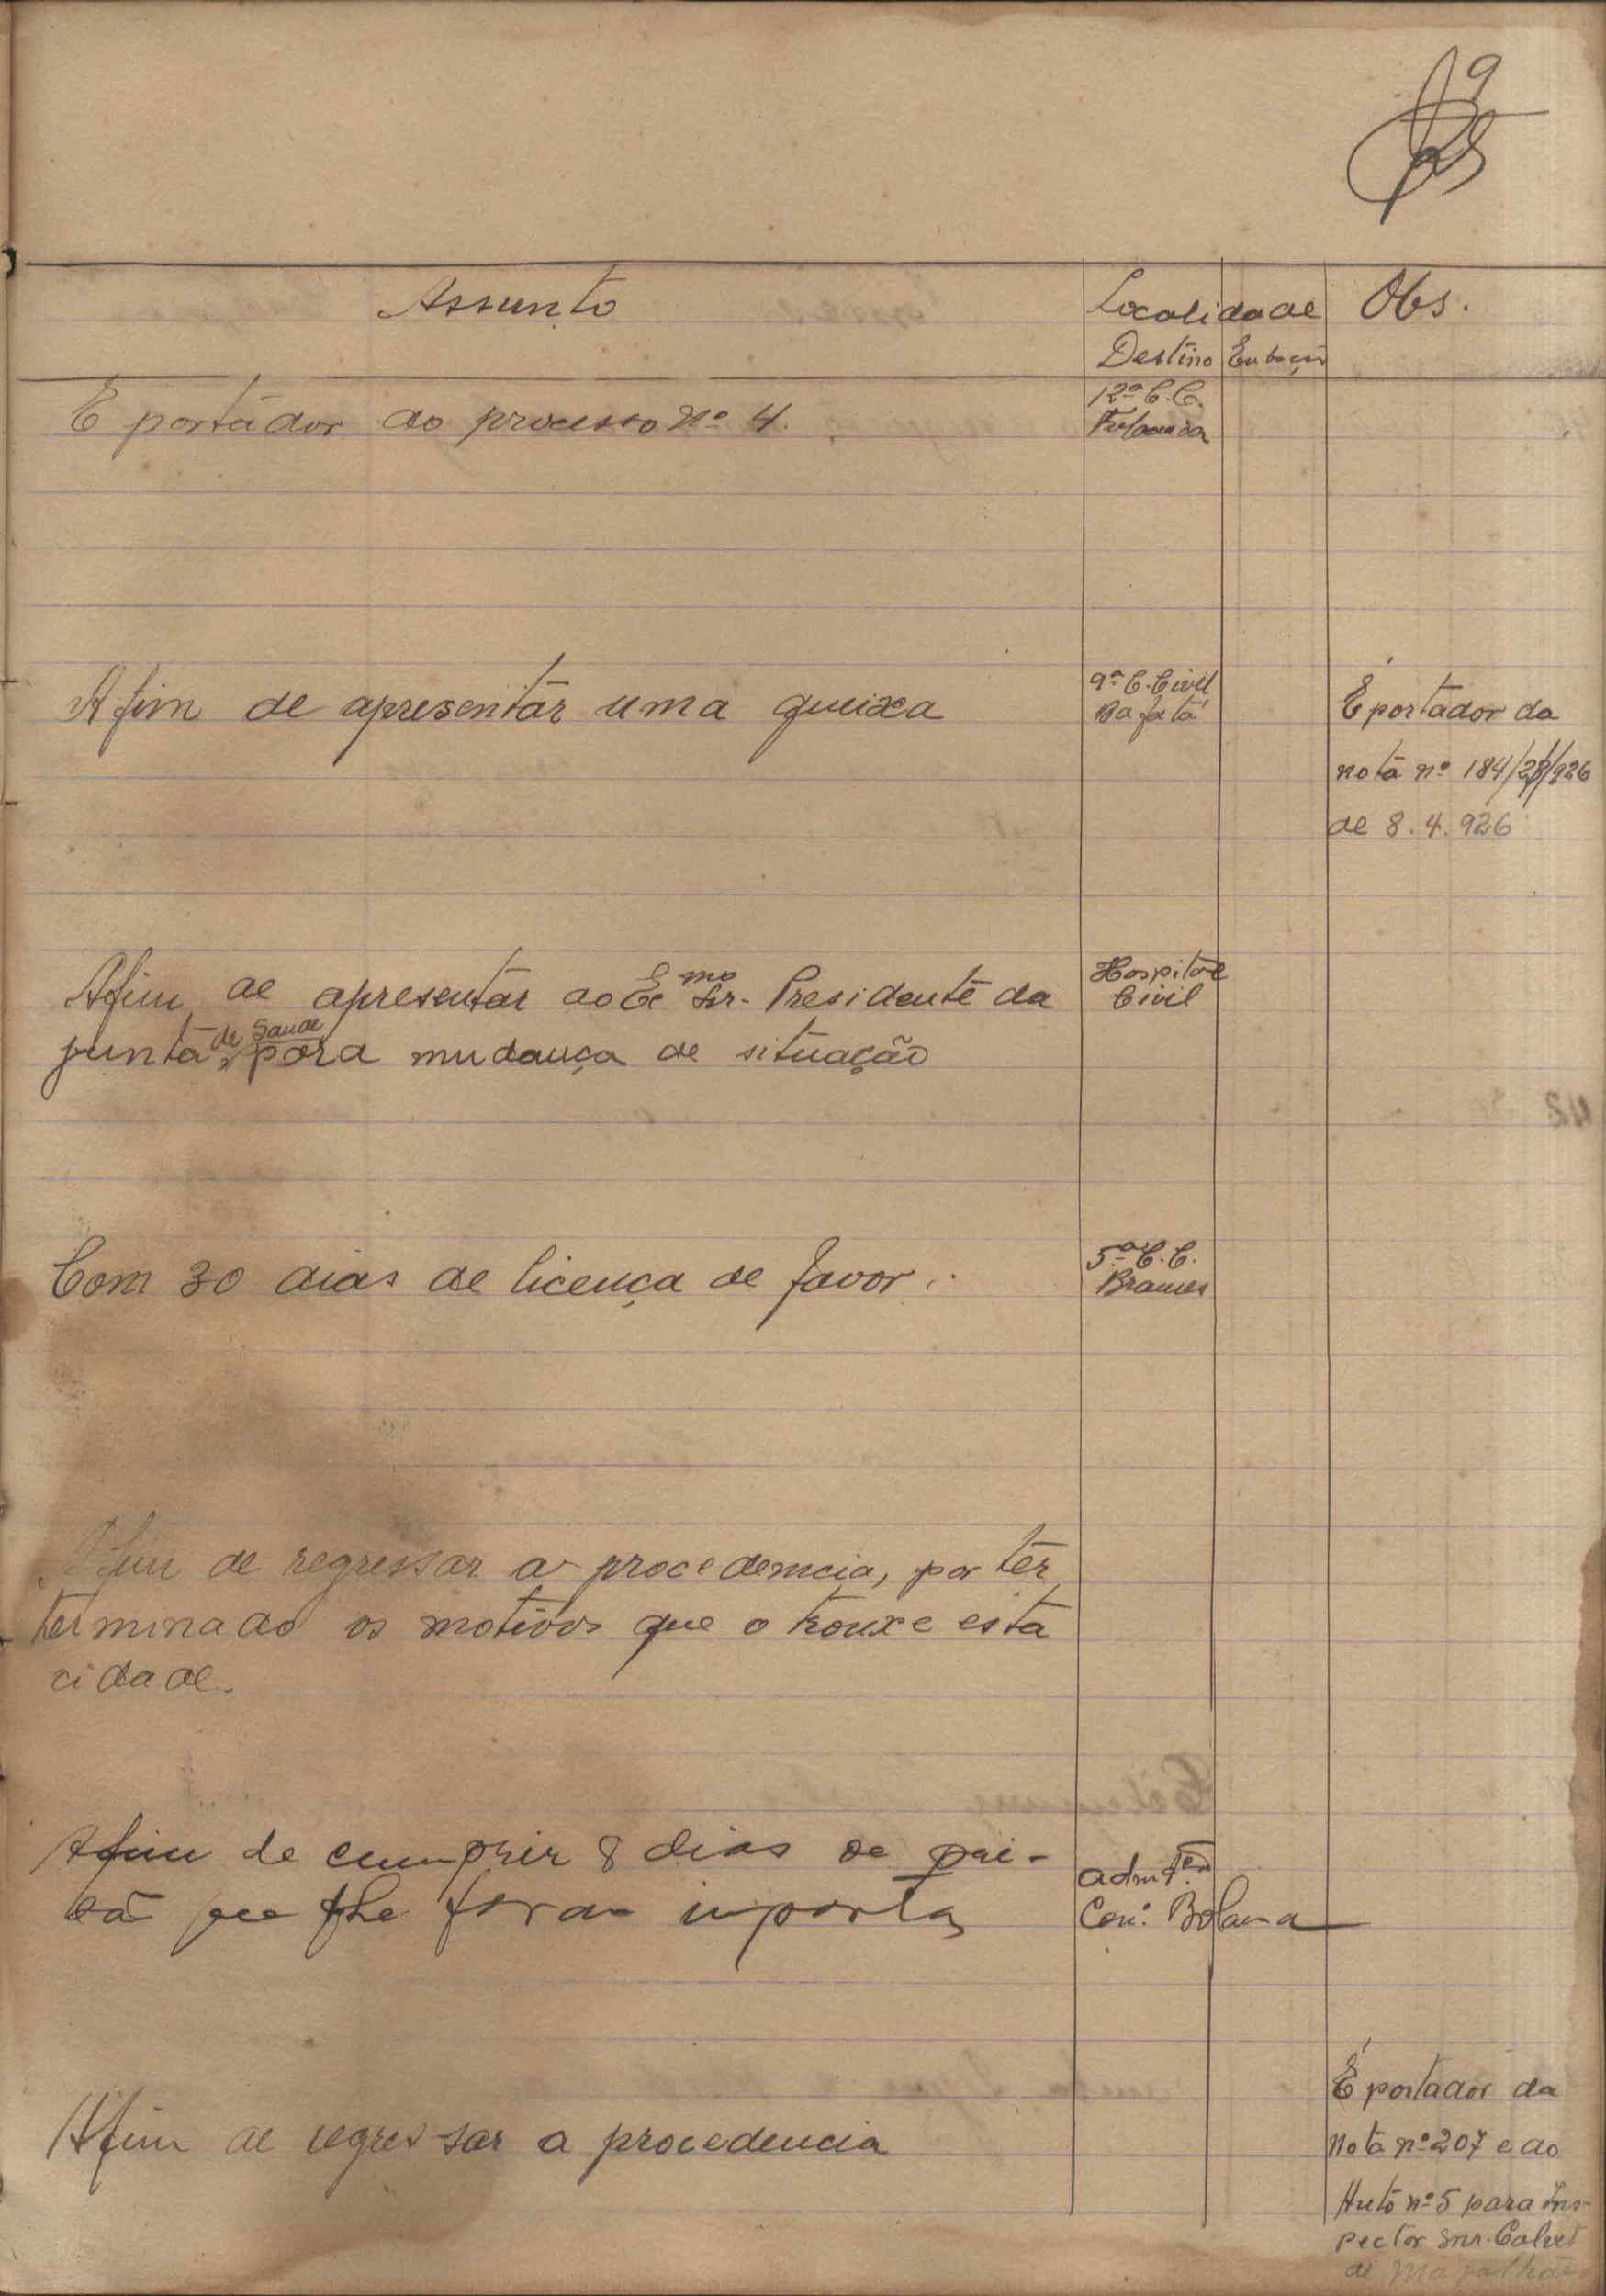 9
Assunto
Localidade
Obs.
Destino
É portador do processo nº 4.
12ª C. C.
A fim de apresentar uma queixa
9ª C. Civil
Bafatá
É portador da
nota nº 184/28/926
de 8.4.926
Afim de apresentar ao Exmo Snr. Presidente da
junta de Saude para mudança de situação
Hospital
Civil
Com 30 dias de licença de favor.
5ª C. C.
Brames
Afim de regressar a procedencia, por ter
terminado os motivos que o trouxe esta
cidade.
Afim de cumprir 8 dias de pri-
que lhe foram
Con. Bolama
Afim de regressar a procedencia
É portador da
nota nº 207 e do
Auto nº 5 para Ins-
pector Snr. Calvet
de Magalhães